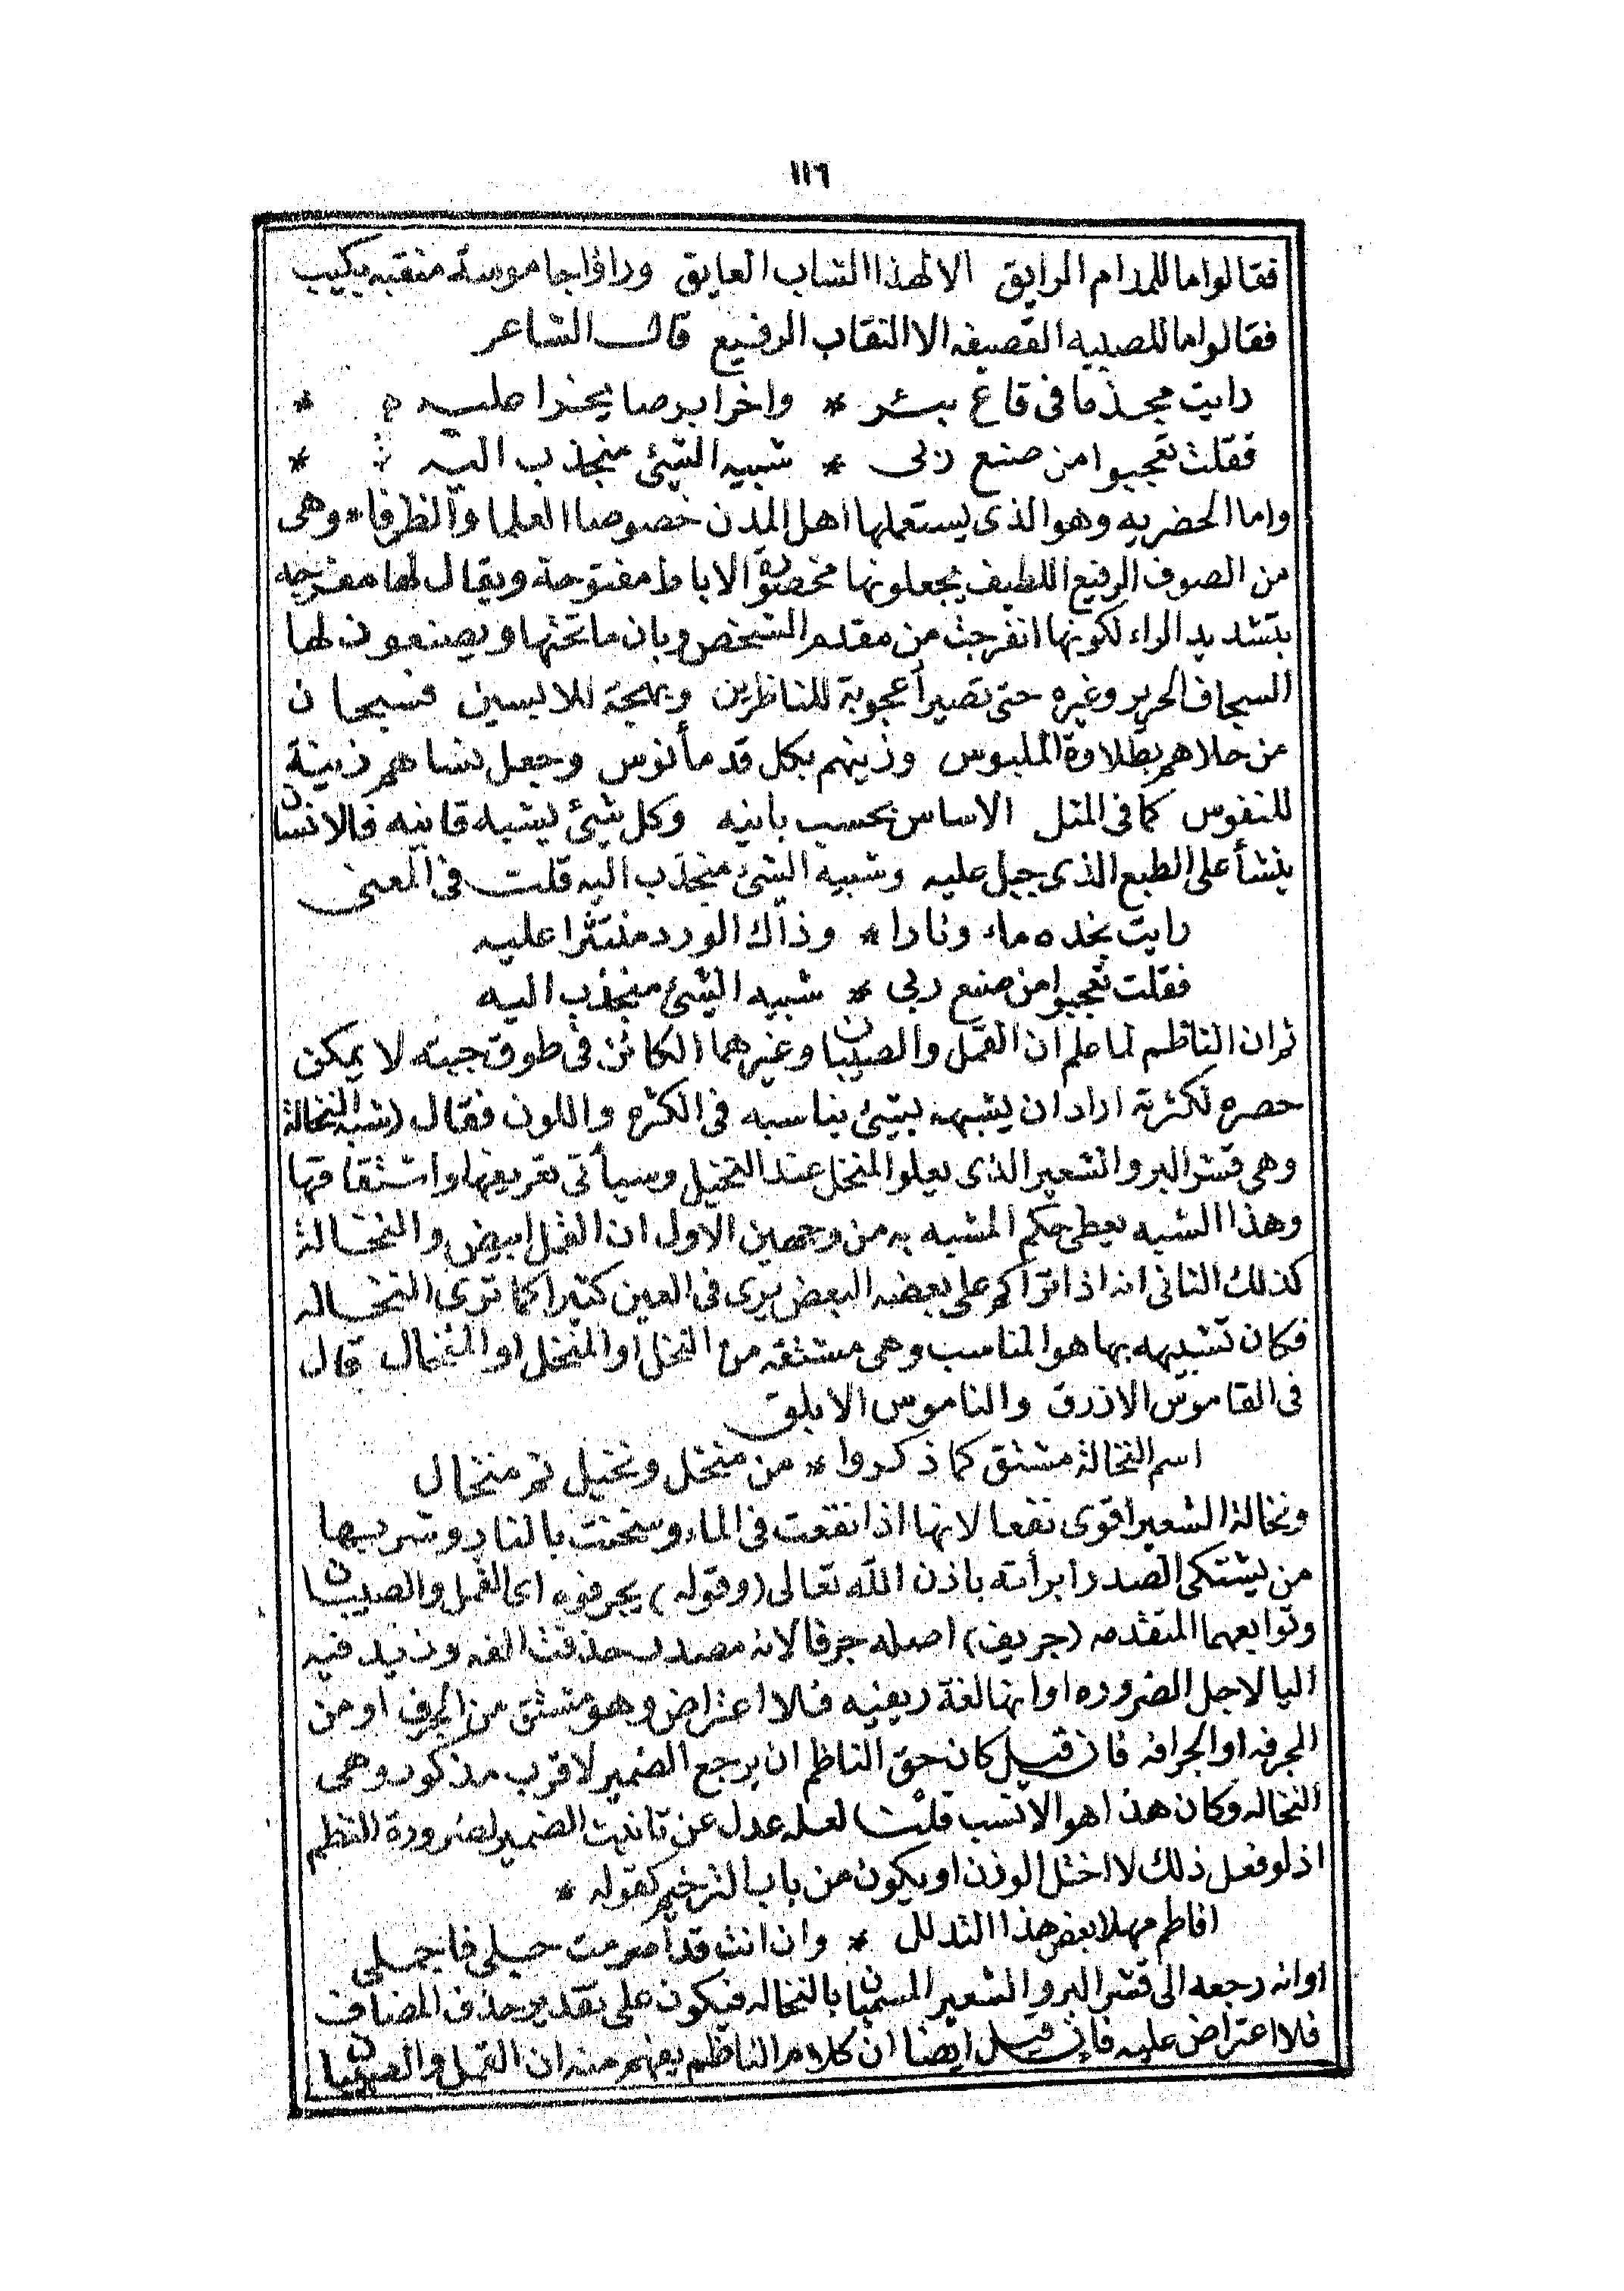 ١١٦
فقالوا ما للمدام الرايق الا لهذا الشاب العايق وراؤا جاموسة منقبه بكيب
فقالوا ما للصبيه القصيفه الا النقاب الرفيع قال الشاعر
رايت مجذما فى قاع بئر * واخرا برصا يخرا عليه *
فقلت تعجبوا من صنع ربى * شبيه الشئ منجذب اليه *
واما الحضريه وهو الذى يستعملها اهل المدن خصوصا العلما والظرفاء وهى
من الصوف الرفيع اللطيف يجعلونها مخصورة الاباط مفتوحة ويقال لها مفرجه
بتشديد الراء لكونها انفرجت من مقدم الشخص وبان ما تحتها ويصنعون لها
السجاف الحرير وغيره حتى تصير أعجوبة للناظرين وبهجة للابسين فسبحان
من حلاهم بطلاوة الملبوس وزينهم بكل قد مأنوس وجعل نساهم زينة
للنفوس كما فى المثل الاساس بحسب بانيه وكل شئ يشبه قانيه فالانسان
ينشأ على الطبع الذى جبل عليه وشبيه الشئ منجذب اليه قلت فى المعنى
رايت بخده ماء ونارا * وذاك الورد منتثرا عليه
فقلت تعجبوا من صنع ربى * شبيه الشئ منجذب اليه
ثم ان الناظم لما علم ان القمل والصيبان وغيرهما الكائن فى طوق جبته لا يمكن
حصره لكثرته اراد ان يشبهه بشئ يناسبه فى الكثره واللون فقال (شبه النخالة
وهى قشر البر والشعير الذى يعلو المنخل عند التنخيل وسيأتى تعريفها واشتقاقها
وهذا الشبه يعطى حكم المشبه به من وجهين الاول ان القمل ابيض والنخالة
كذلك الثانى انه اذا تراكم على بعضه البعض يرى فى العين كثيرا كما ترى النخاله
فكان تشبيهه بها هو المناسب وهى مشتقه من النخل او المنخل او المنخال قال
فى القاموس الازرق والناموس الابلق
اسم النخالة مشتق كما ذكروا * من منخل ونخيل ثم منخال
ونخالة الشعير اقوى نفعا لانها اذا نقعت فى الماء وسخنت بالنار وشربها
من يشتكى الصدر ابرأته باذن الله تعالى (وقوله) يجرفوه اى القمل والصيبان
وتوابعهما المتقدمه (جريف) اصله جرفا لانه مصدر حذفت الفه وزيد فيه
اليا لاجل الضروره او انها لغة ريفيه فلا اعتراض وهو مشتق من الجرف او من
المجرفه او الجرافه فان قيل كان حق الناظم ان يرجع الضمير لاقرب مذكور وهى
النخاله وكان هذا هو الانسب قلت لعله عدل عن تانيث الضمير لضرورة النظم
اذ لو فعل ذلك لا اختل الوزن او يكون من باب الترخيم كقوله *
افاطم مهلا بعض هذا التدلل * وان انت قد أصرمت حبلى فاجملى
او انه رجعه الى قشر البر والشعير المسميان بالنخاله فيكون على تقدير حذف المضاف
فلا اعتراض عليه فان قيل ايضا ان كلام الناظم يفهم منه ان القمل والصيبان